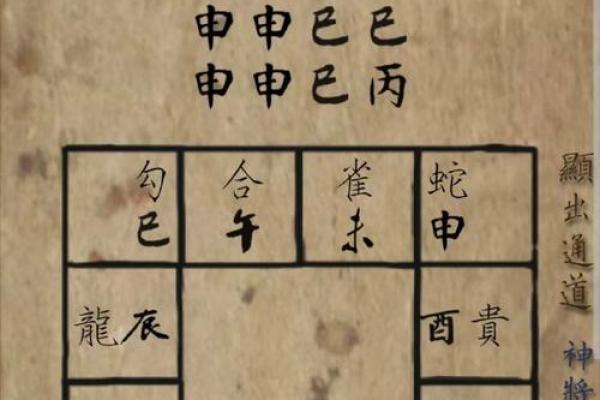 申申巳巳
申申巳丙
勾 合 雀 蛇
巳 午 未 申
龍辰 酉貴
顯出通道
神將